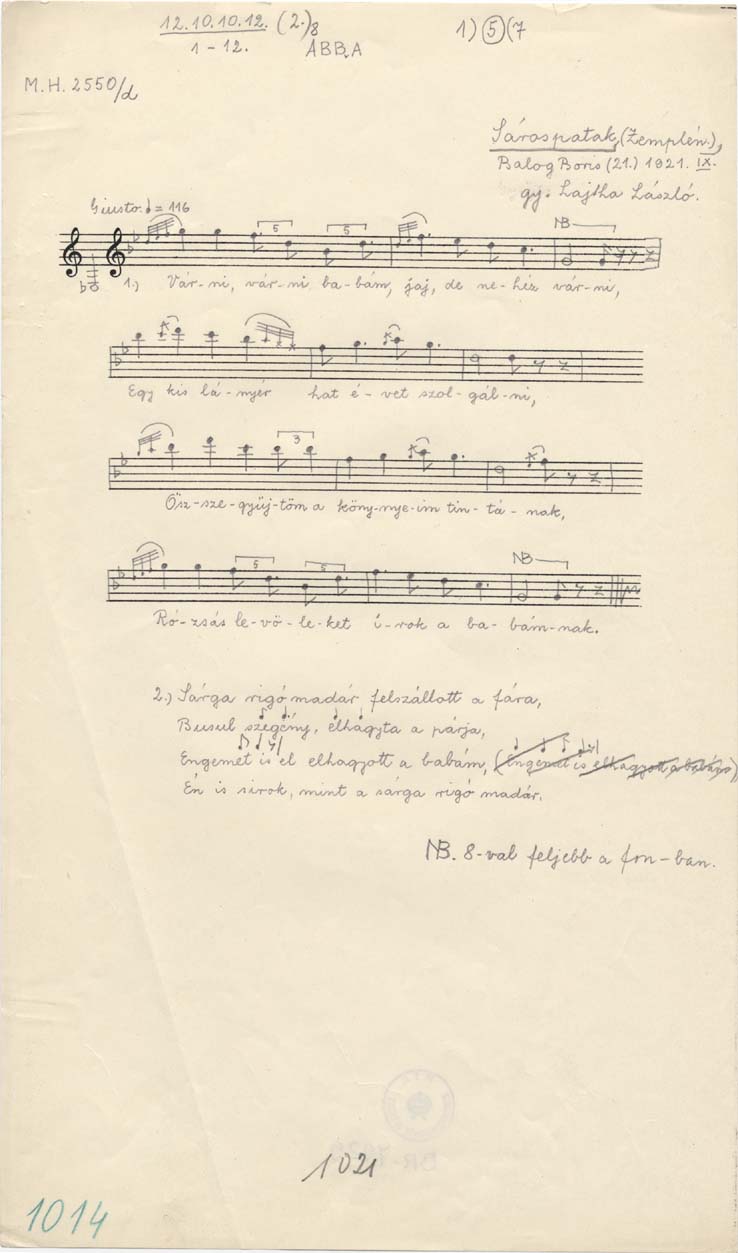 12.10.10.12. (2.)8 1) 5 (7
1 - 12. ABBA
M.H. 2550/d
Sárospatak, (Zemplén.),
Balog Boris (21.) 1921. IX.
gy. Lajtha László.
Giusto. = 116
NB
5 5
1.) Vár-ni, vár-ni ba-bám, jaj, de ne-héz vár-ni,
Egy kis lá-nyér hat é-vet szol-gál-ni,
3
Ösz-sze-gyüj-töm a köny-nye-im tin-tá-nak,
NB
5 5
Ró-zsás le-vö-le-ket í-rok a ba-bám-nak.
2.) Sárga rigó madár felszállott a fára,
Busul szegény, elhagyta a párja,
Engemet is el elhagyott a babám, (Engemet is elhagyott a babám)
Én is sirok, mint a sárga rigó madár.
NB. 8-val feljebb a fon-ban.
1021
1014